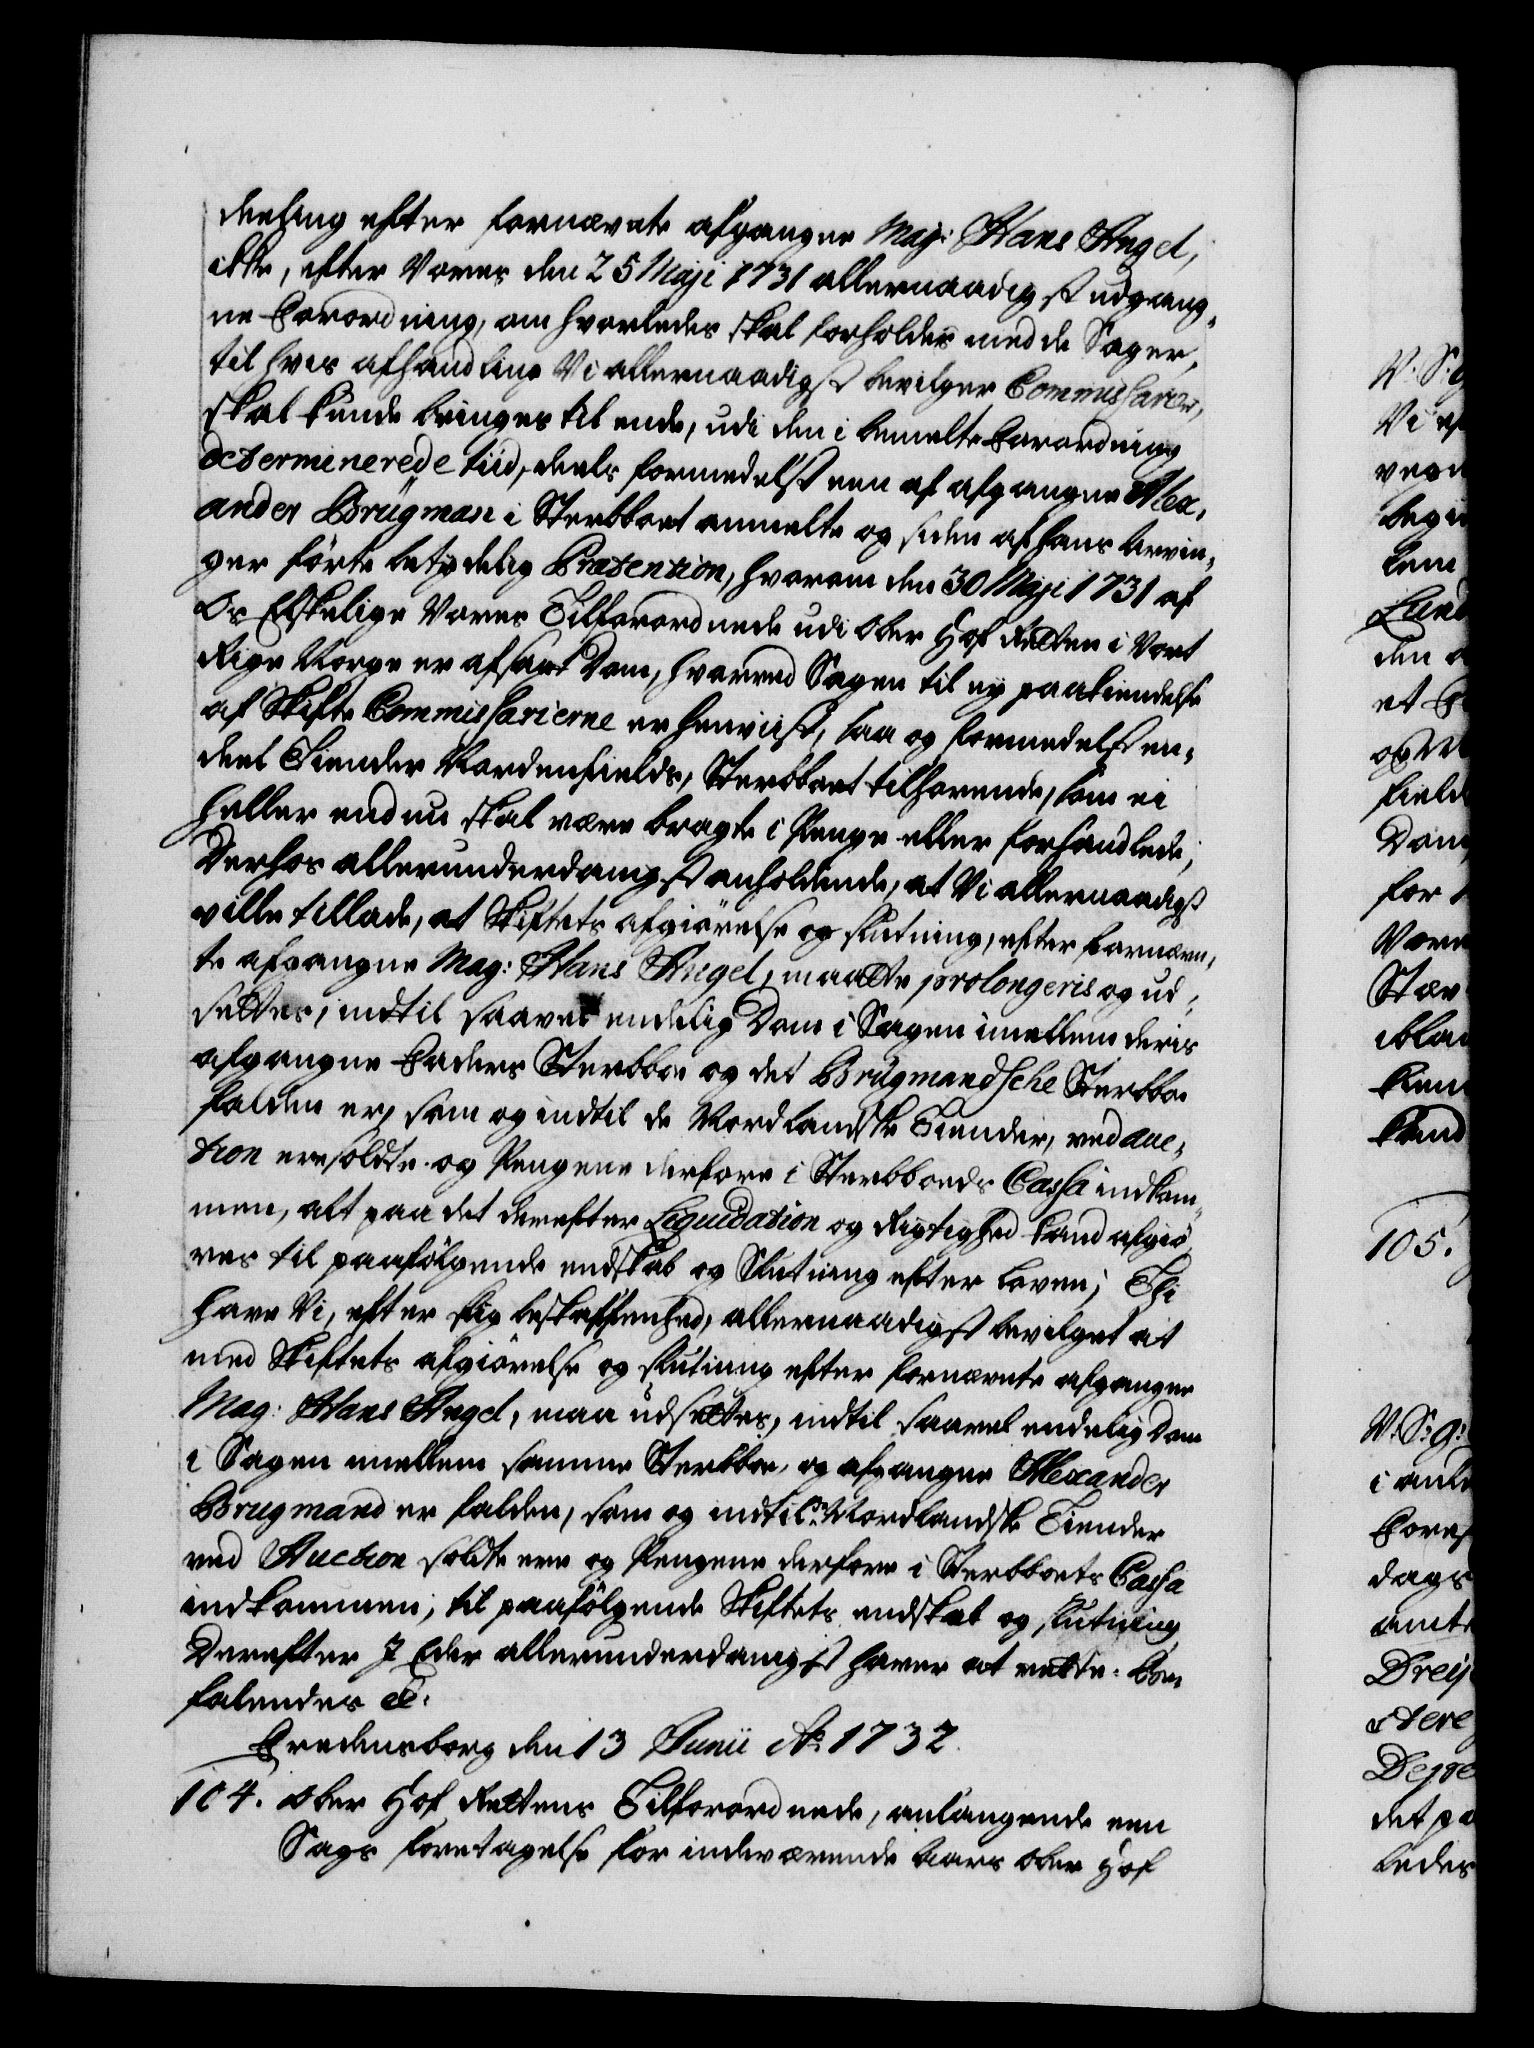 deeling efter fornævnte afgangne Mag: Hans Angel,
ikke, efter Vores den 25 Maji 1731 allernaadigst udgang,
ne Forordning, om hvorledes skal forholdes med de Sager,
til hvis afhandling Vi allernaadigst bevilger Commissarier,
skal kunde bringes til ende, udi den i bemelte Forordning
determinerede tiid, deels formedelst een af afgangne Alex,
ander Brügman i Sterbboet anmelte og siden af hans Arvin,
ger førte betydelig Prætention, hvorom den 30 Maji 1731 af
Os Elskelige Vores Tilforordnede udi Ober Hof Retten i Vort
Rige Norge er afsagt Dom, hvorved Sagen til ny paakiendelse
af Skifte Commissarierne er henviist, saa og formedelst en,
deel Tiender Nordenfields, Sterbboet tilhørende, som ei
heller endnu skal være bragte i Penge eller forhandlede,
Derhos allerunderdanigst anholdende, at Vi allernaadigst
ville tillade, at Skiftets afgiørelse og slutning, efter fornævn,
te afgangne Mag: Hans Angel, maatte prolongeris og ud,
settes, indtil saavel endelig Dom i Sagen imellem deris
afgangne Faders Sterbboe og det Brügmandsche Sterbboe
falden er, som og indtil de Nordlandske Tiender, ved Auc,
tion ere soldte og Pengene derfore i Sterbboeds Cassa indkom,
men, alt paa det derefter Liquidation og Rigtighed kand afgiø,
res til paafølgende endskab og Slutning efter loven; Thi
have Vi, efter slig beskaffenhed, allernaadigst bevilget at
med Skiftets afgiørelse og slutning efter fornævnte afgangne
Mag: Hans Angel, maa udsettes, indtil saavel endelig Dom
i Sagen imellem samme Sterbboe, og afgangne Alexander
Brugmand er falden, som og indtil de Nordlandske Tiender
ved Auction soldte ere og Pengene derfore i Sterbboets Cassa
indkommen, til paafølgende Skiftets endskab og slutning
Derefter I Eder allerunderdanigst haver at rette. Be,
falendes &.
Fredensborg den 13 Junii Ao. 1732.
104. Ober Hof Rettens Tilforordnede, anlangende een
Sags foretagelse for indeværende Aars Ober Hof
105.